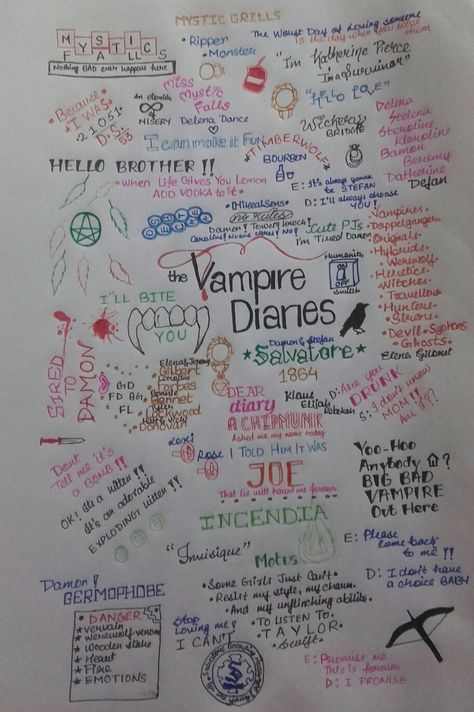 MYSTIC GRILLS
MYSTIC
FALLS
Nothing BAD ever happens here
• Ripper
• Monster
The Worst Day of Loving someone
is the day when you lose
them
"I'm Katherine Pierce
I'm a Survivor"
"HELLO LOVE"
Miss
Mystic
Falls
•Because
I WAS•
MISERY
Delena Dance
Wickery
BRIDGE
I can make it Fun
TIMBERWOLF
BOURBON
Delena
Stelena
Steroline
Klaroline
Bamon
Beremy
Datherine
Defan
HELLO BROTHER !!
• When Life Gives You Lemon
ADD VODKA to it•
E: It's always gonna
be STEFAN
D: I'll always choose
YOU!
no rules
Damon! Towery knock!
Cute PJs
I'm Tired Damon
• Vampires
• Doppelgangers
• Originals
• Hybrids
• Werewolf
• Heretics
• Witches
• Travellers
• Hunters
• Sirens
• Devil•Syphons
• Ghosts
Humanity
ON
OFF
Switch
the Vampire
Diaries
I'LL BITE
YOU
SIRED
TO
DAMON
Damon & Stefan
*Salvatore*
1864
Elena Gilbert
Elena & Jeremy
Gilbert
Caroline
Forbes
Bonnie
Bennet
Tyler
Lockwood
Matt & Vicky
Donovan
GD
FD BG
FL
DEAR
diary
A CHIPMUNK
Asked me my name today
Klaus
Elijah
Rebekah
D: Are you
DRUNK
S: I don't know
MOM!!
Am I??
Lexi
Rose
I TOLD HIM IT WAS
JOE
That lie will haunt me forever
Dont
Tell me it's
a BOMB!!
OK! Its a kitten!!
It's an adorable
EXPLODING kitten!!
Yoo-Hoo
Anybody
BIG BAD
VAMPIRE
Out Here
INCENDIA
"Invisique"
Motus
E: Please
Come back
to me !!
D: I don't have
a choice BABY
• Some Girls Just Can't•
• Resist my style, my charm.
• And my unflinching ability.
• TO LISTEN TO•
• TAYLOR•
• Swift•
Damon!
GERMOPHOBE
DANGER
★ vervain
★ werewolf-venom
★ Wooden stake
★ Heart
★ Fire
★ EMOTIONS
Stop
Loving me!
I CAN'T
E: Promise me
This is forever
D: I PROMISE